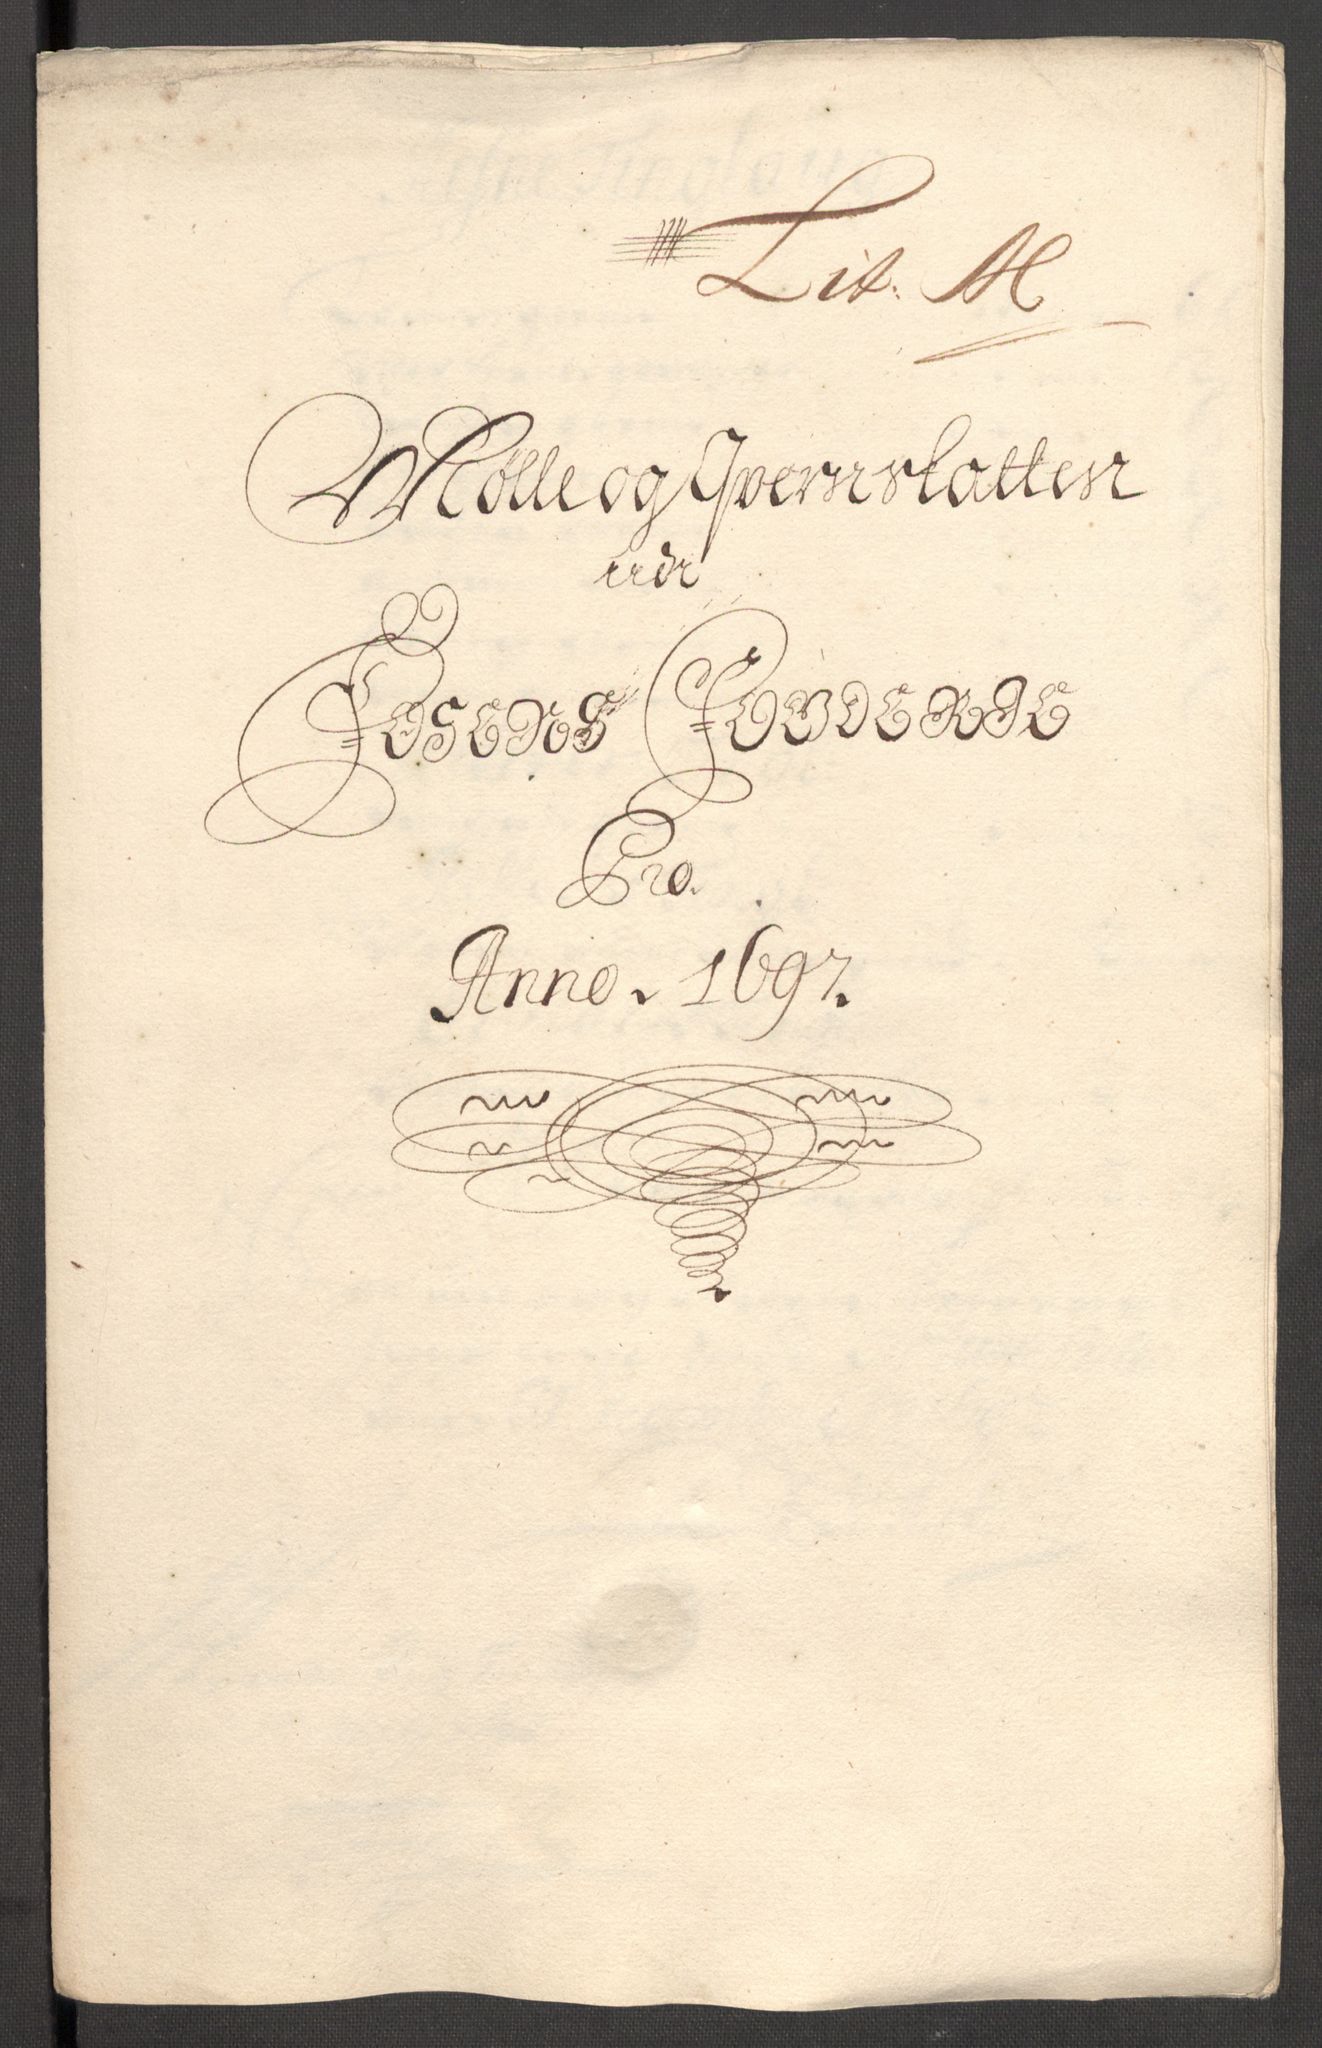 Lit: M
Mølle og Qvernskatten
udi
Fosens Fougderie
Pro.
Anno. 1697.